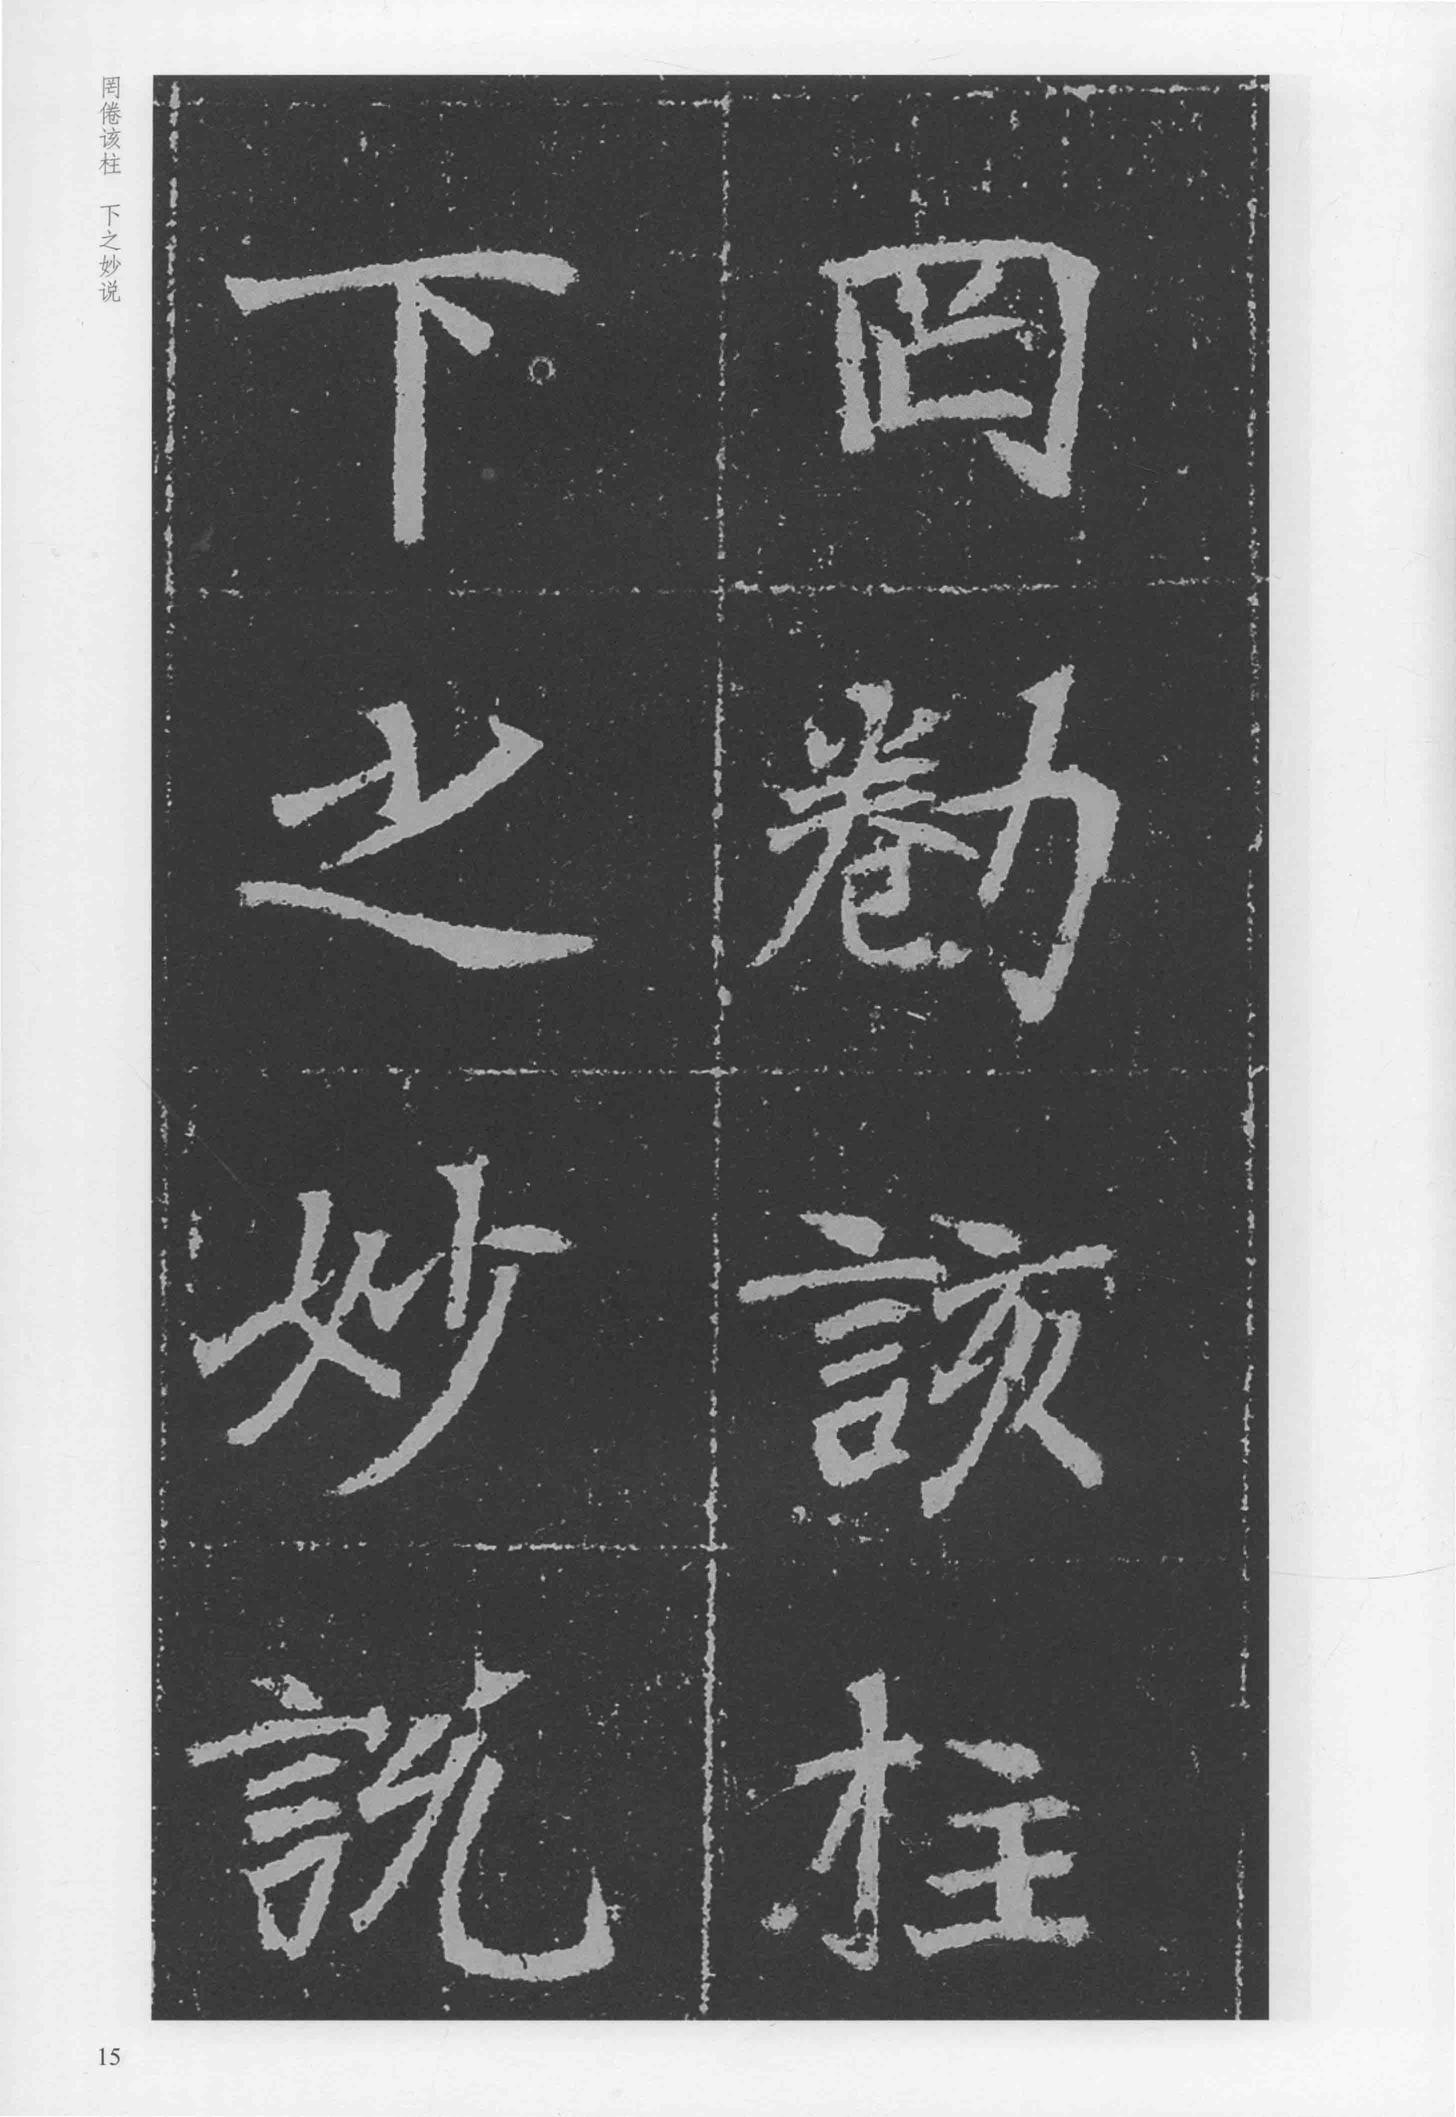 罔勌該柱
下之妙說
罔倦该柱　下之妙说
15